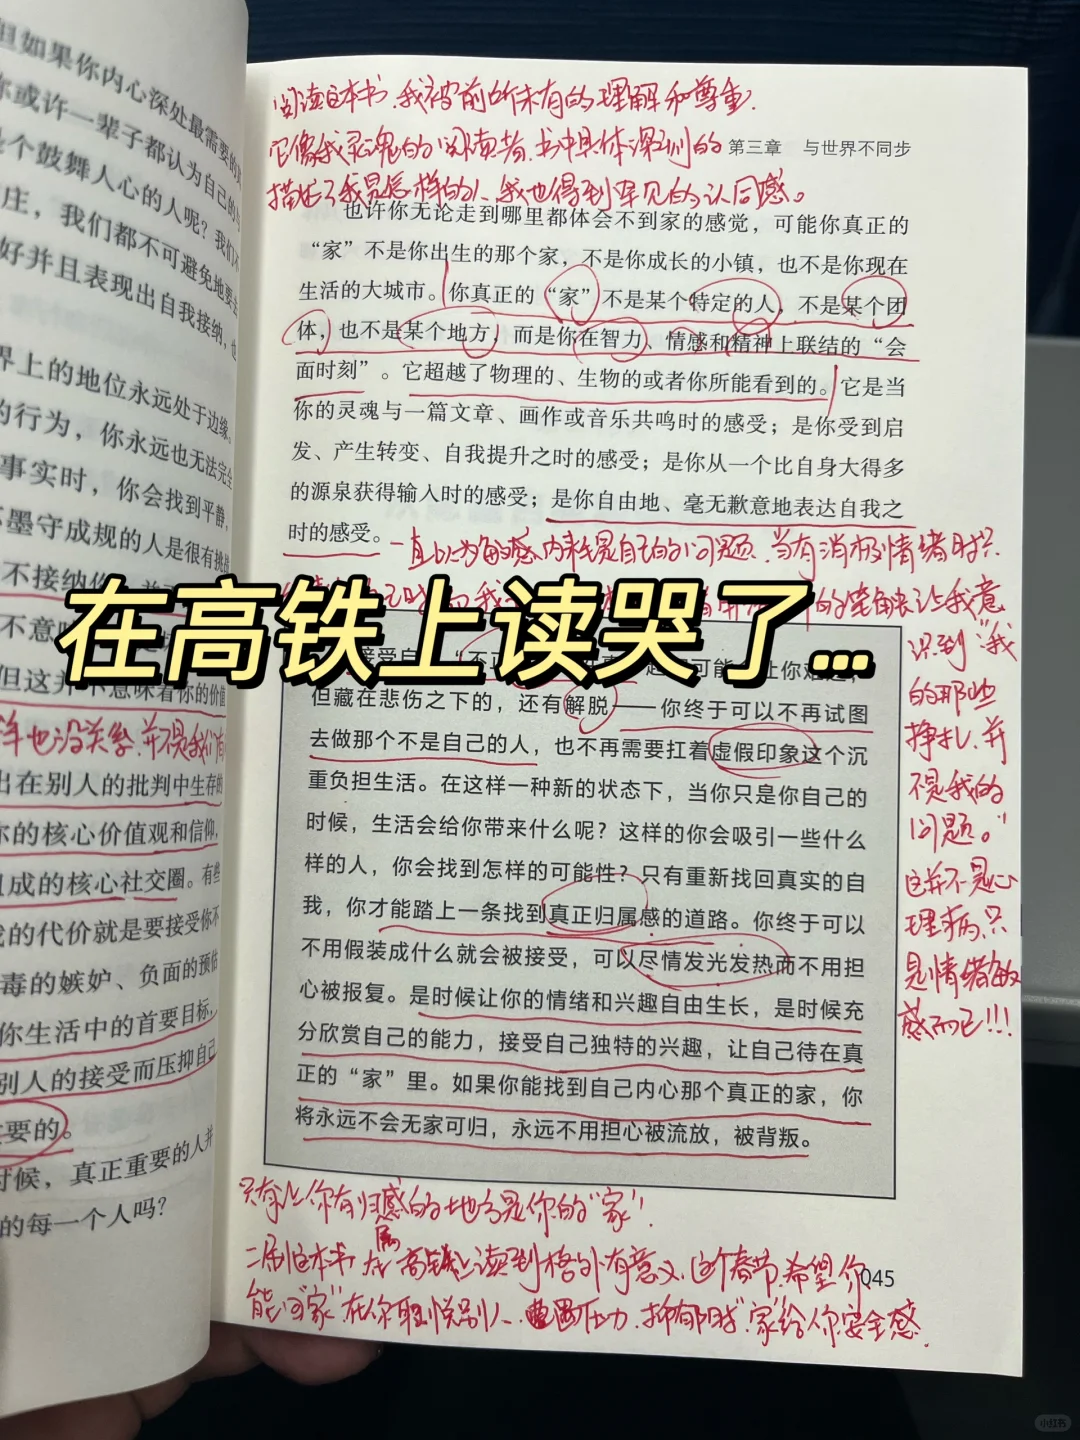 但如果你内心深处最需要的
你或许一辈子都认为自己的
是个鼓舞人心的人呢？我们不
庄，我们都不可避免地要去
好并且表现出自我接纳，也
界上的地位永远处于边缘。
的行为，你永远也无法完全
事实时，你会找到平静，
墨守成规的人是很有挑战
不接纳你
不意味
但这并不意味着你的价值
样也没关系，并不是我们有
出在别人的批判中生存的
你的核心价值观和信仰，
组成的核心社交圈。有些
我的代价就是要接受你不
毒的嫉妒、负面的预估
你生活中的首要目标，
别人的接受而压抑自己
要的。
时候，真正重要的人并
的每一个人吗？
阅读这本书，我被前所未有的理解和尊重，
它像我灵魂的阅读者，书中具体深刻的
描述了我是怎样的人，我也得到罕见的认同感。
第三章 与世界不同步
也许你无论走到哪里都体会不到家的感觉，可能你真正的
“家”不是你出生的那个家，不是你成长的小镇，也不是你现在
生活的大城市。你真正的“家”不是某个特定的人，不是某个团
体，也不是某个地方，而是你在智力、情感和精神上联结的“会
面时刻”。它超越了物理的、生物的或者你所能看到的。它是当
你的灵魂与一篇文章、画作或音乐共鸣时的感受；是你受到启
发、产生转变、自我提升之时的感受；是你从一个比自身大得多
的源泉获得输入时的感受；是你自由地、毫无歉意地表达自我之
时的感受。
一直以为敏感、内耗是自己的问题，当有消极情绪时
的笔触让我意
识到“我
的那些
挣扎，并
不是我的
问题。”
这并不是心
理病，只
是情绪敏
感而已!!!
在高铁上读哭了...
接受自
可能
让你难
但藏在悲伤之下的，还有解脱——你终于可以不再试图
去做那个不是自己的人，也不再需要扛着虚假印象这个沉
重负担生活。在这样一种新的状态下，当你只是你自己的
时候，生活会给你带来什么呢？这样的你会吸引一些什么
样的人，你会找到怎样的可能性？只有重新找回真实的自
我，你才能踏上一条找到真正归属感的道路。你终于可以
不用假装成什么就会被接受，可以尽情发光发热而不用担
心被报复。是时候让你的情绪和兴趣自由生长，是时候充
分欣赏自己的能力，接受自己独特的兴趣，让自己待在真
正的“家”里。如果你能找到自己内心那个真正的家，你
将永远不会无家可归，永远不用担心被流放，被背叛。
只有让你有归属感的地方是你的“家”！
二刷这本书在高铁上读到格外有意义，这个春节，希望你
能回“家”在你取悦别人、遭遇压力、抑郁时“家”给你安全感
045
小红书